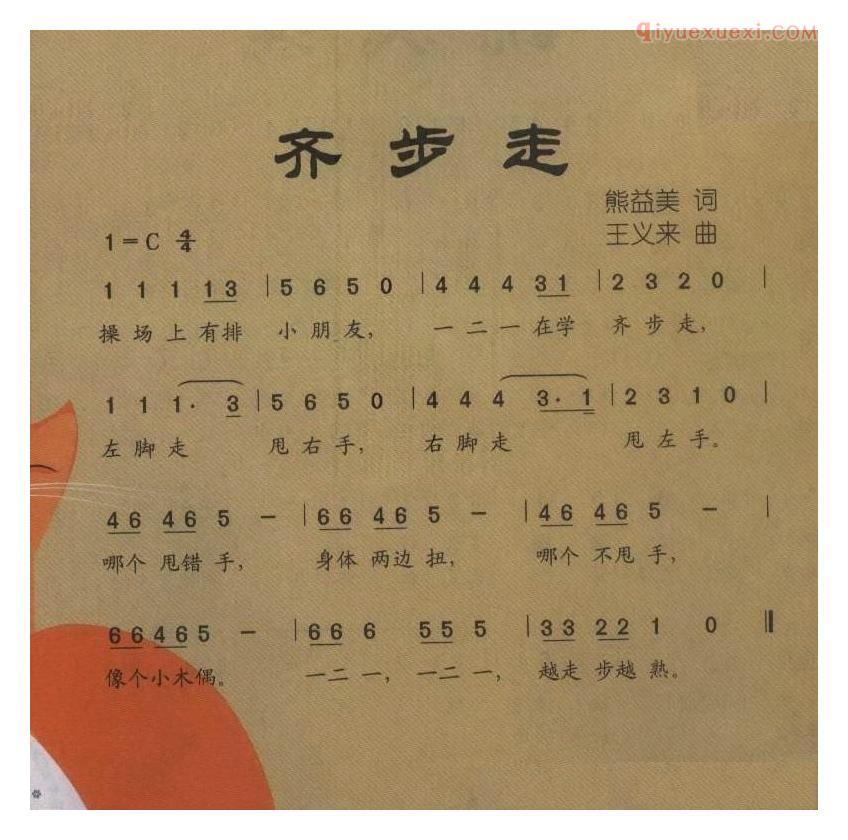 qiyuexuexi.COM
齐步走
熊益美 词
1=C 4/4 王义来 曲
1 1 1 13 | 5 6 5 0 | 4 4 4 31 | 2 3 2 0 |
操场上有排 小朋友, 一二一在学 齐步走,
1 1 1· 3 | 5 6 5 0 | 4 4 4 3·1 | 2 3 1 0 |
左脚走 甩右手, 右脚走 甩左手。
46 46 5 － | 66 46 5 － | 46 46 5 － |
哪个甩错手, 身体两边扭, 哪个不甩手,
66 46 5 － | 66 6 55 5 | 33 22 1 0 ‖
像个小木偶。 一二一, 一二一, 越走步越熟。